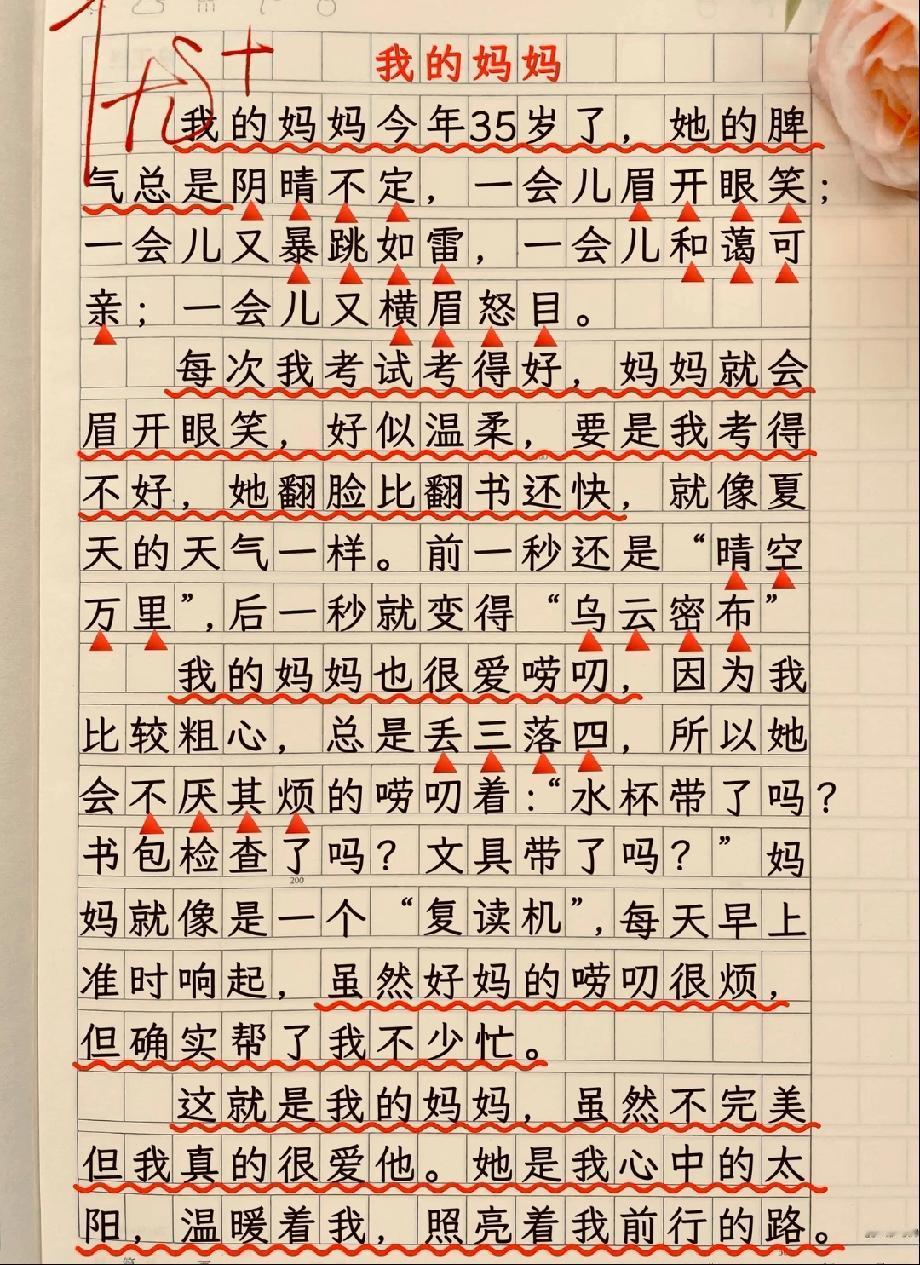 优+
我的妈妈
我的妈妈今年35岁了，她的脾
气总是阴晴不定，一会儿眉开眼笑；
一会儿又暴跳如雷，一会儿和蔼可
亲；一会儿又横眉怒目。
每次我考试考得好，妈妈就会
眉开眼笑，好似温柔，要是我考得
不好，她翻脸比翻书还快，就像夏
天的天气一样。前一秒还是“晴空
万里”，后一秒就变得“乌云密布”
我的妈妈也很爱唠叨，因为我
比较粗心，总是丢三落四，所以她
会不厌其烦的唠叨着：“水杯带了吗？
书包检查了吗？文具带了吗？”妈
200
妈就像是一个“复读机”，每天早上
准时响起，虽然好妈的唠叨很烦，
但确实帮了我不少忙。
这就是我的妈妈，虽然不完美
但我真的很爱他。她是我心中的太
阳，温暖着我，照亮着我前行的路。